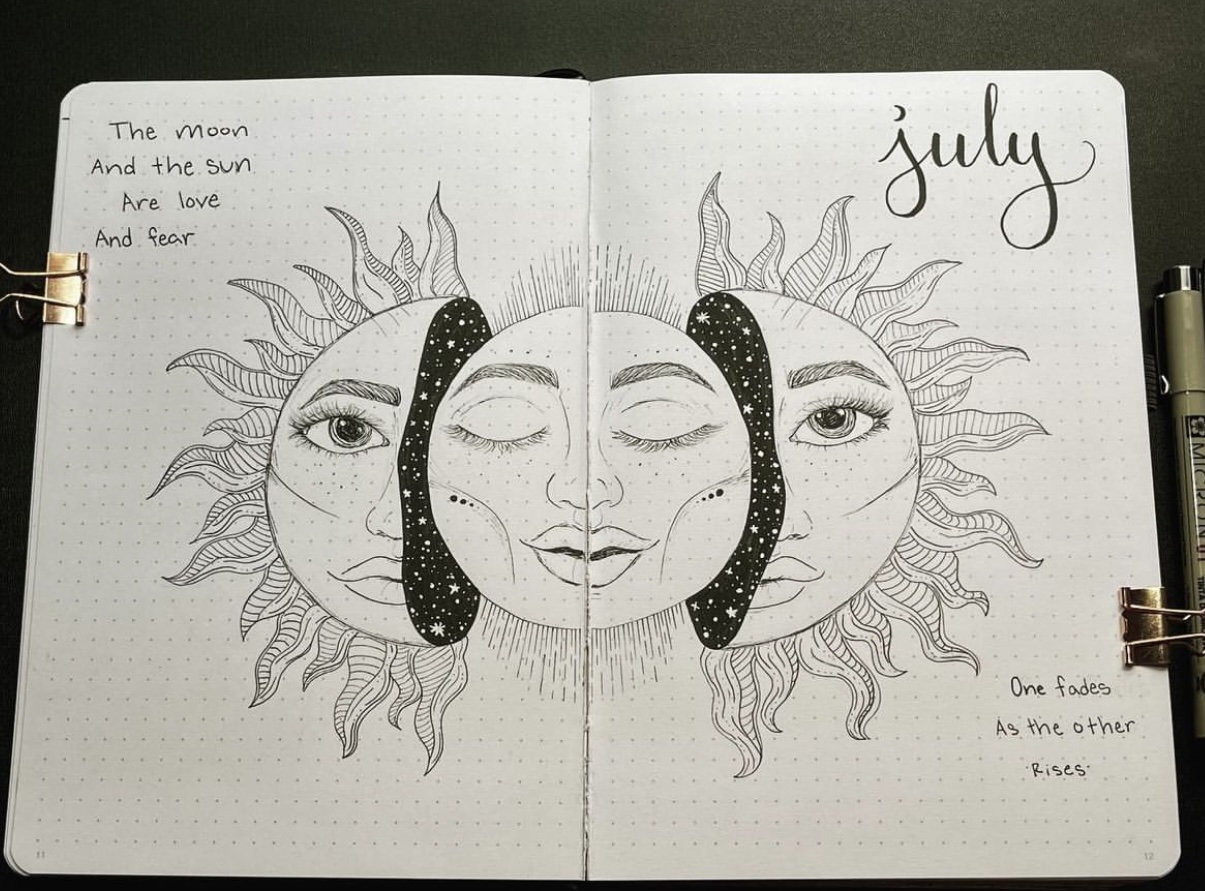 The moon
And the sun
Are love
And fear
july
One fades
As the other
Rises
11
12
MICRON